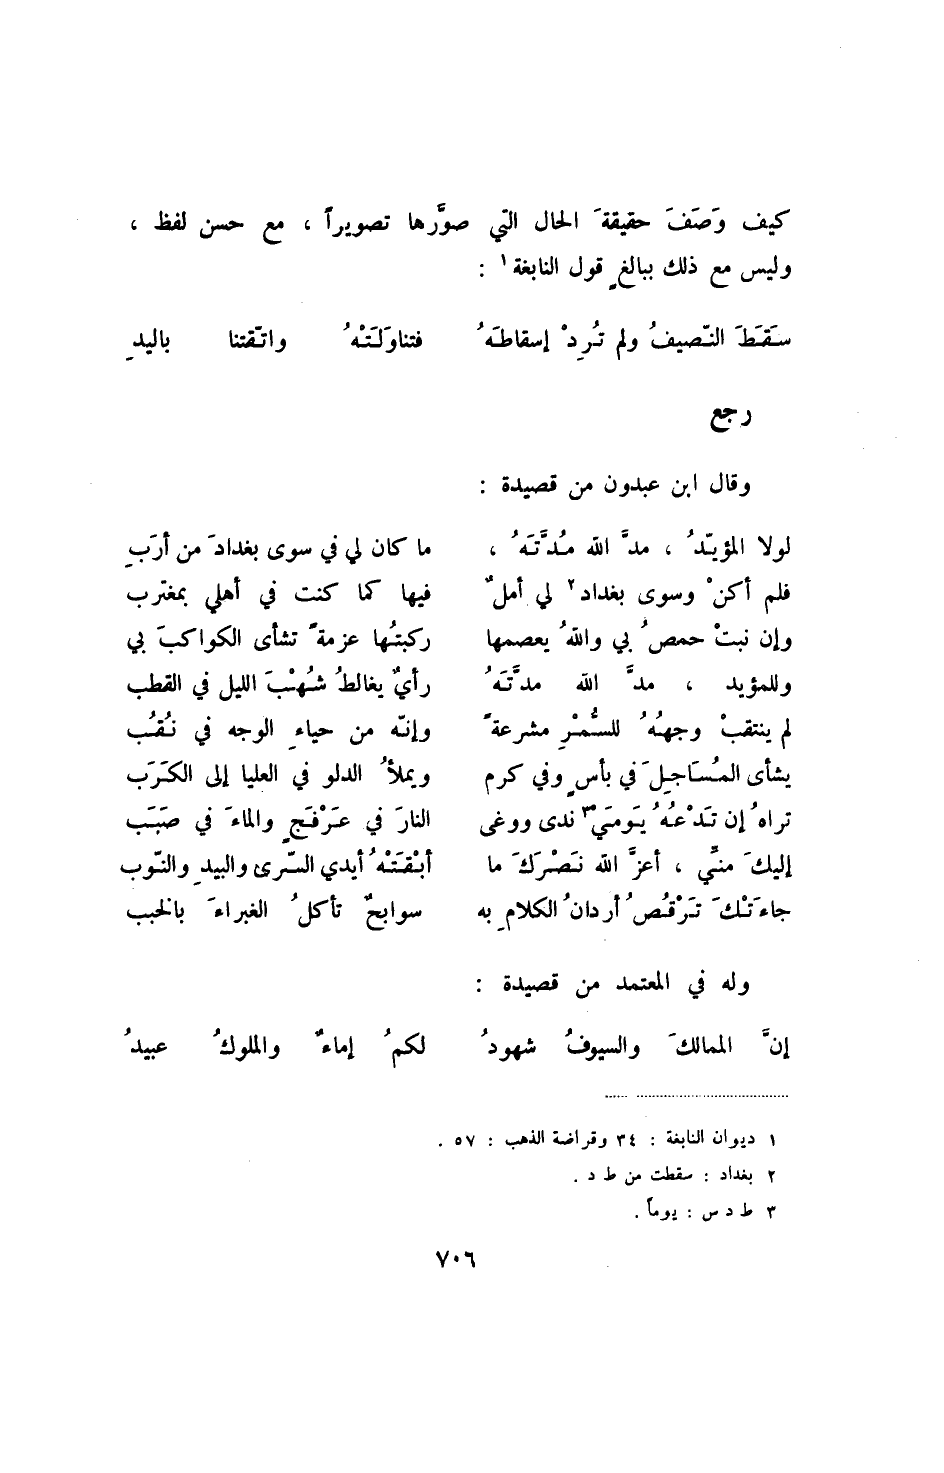 كيف وَصَفَ حقيقةَ الحال التي صوَّرها تصويراً ، مع حسن لفظ ،
وليس مع ذلك ببالغٍ قول النابغة ١ :
سَقَطَ النّصيفُ ولم تُرِدْ إسقاطَهُ فتناوَلَتْهُ واتّقتنا باليدِ
رجع
وقال ابن عبدون من قصيدة :
لولا المؤيّدُ ، مدَّ الله مُدَّتَهُ ، ما كان لي في سوى بغدادَ من أرَبِ
فلم أكنْ وسوى بغداد ٢ لي أملٌ فيها كما كنت في أهلي بمغترب
وإن نبتْ حمصُ بي واللهُ يعصمها ركبتُها عزمةً تشأى الكواكبَ بي
وللمؤيد ، مدَّ الله مدّتَهُ رأيٌ يغالطُ شُهْبَ الليل في القطب
لم ينتقبْ وجههُ للسُّمْرِ مشرعةً وإنّه من حياءِ الوجه في نُقُب
يشأى المُسَاجِلَ في بأسٍ وفي كرم ويملأُ الدلو في العليا إلى الكَرَب
تراهُ إن تَدْعُهُ يَومَيْ ٣ ندى ووغى النارَ في عَرْفَجٍ والماءَ في صَبَب
إليكَ منّي ، أعزَّ الله نَصْرَكَ ما أبْقَتْهُ أيدي السّرى والبيدِ والنّوب
جاءَتْكَ تَرْقُصُ أردانُ الكلامِ به سوابحٌ تأكلُ الغبراءَ بالخبب
وله في المعتمد من قصيدة :
إنَّ الممالكَ والسيوفُ شهودُ لكمُ إماءٌ والملوكُ عبيدُ
١ ديوان النابغة : ٣٤ وقراضة الذهب : ٥٧ .
٢ بغداد : سقطت من ط د .
٣ ط د س : يوماً .
٧٠٦